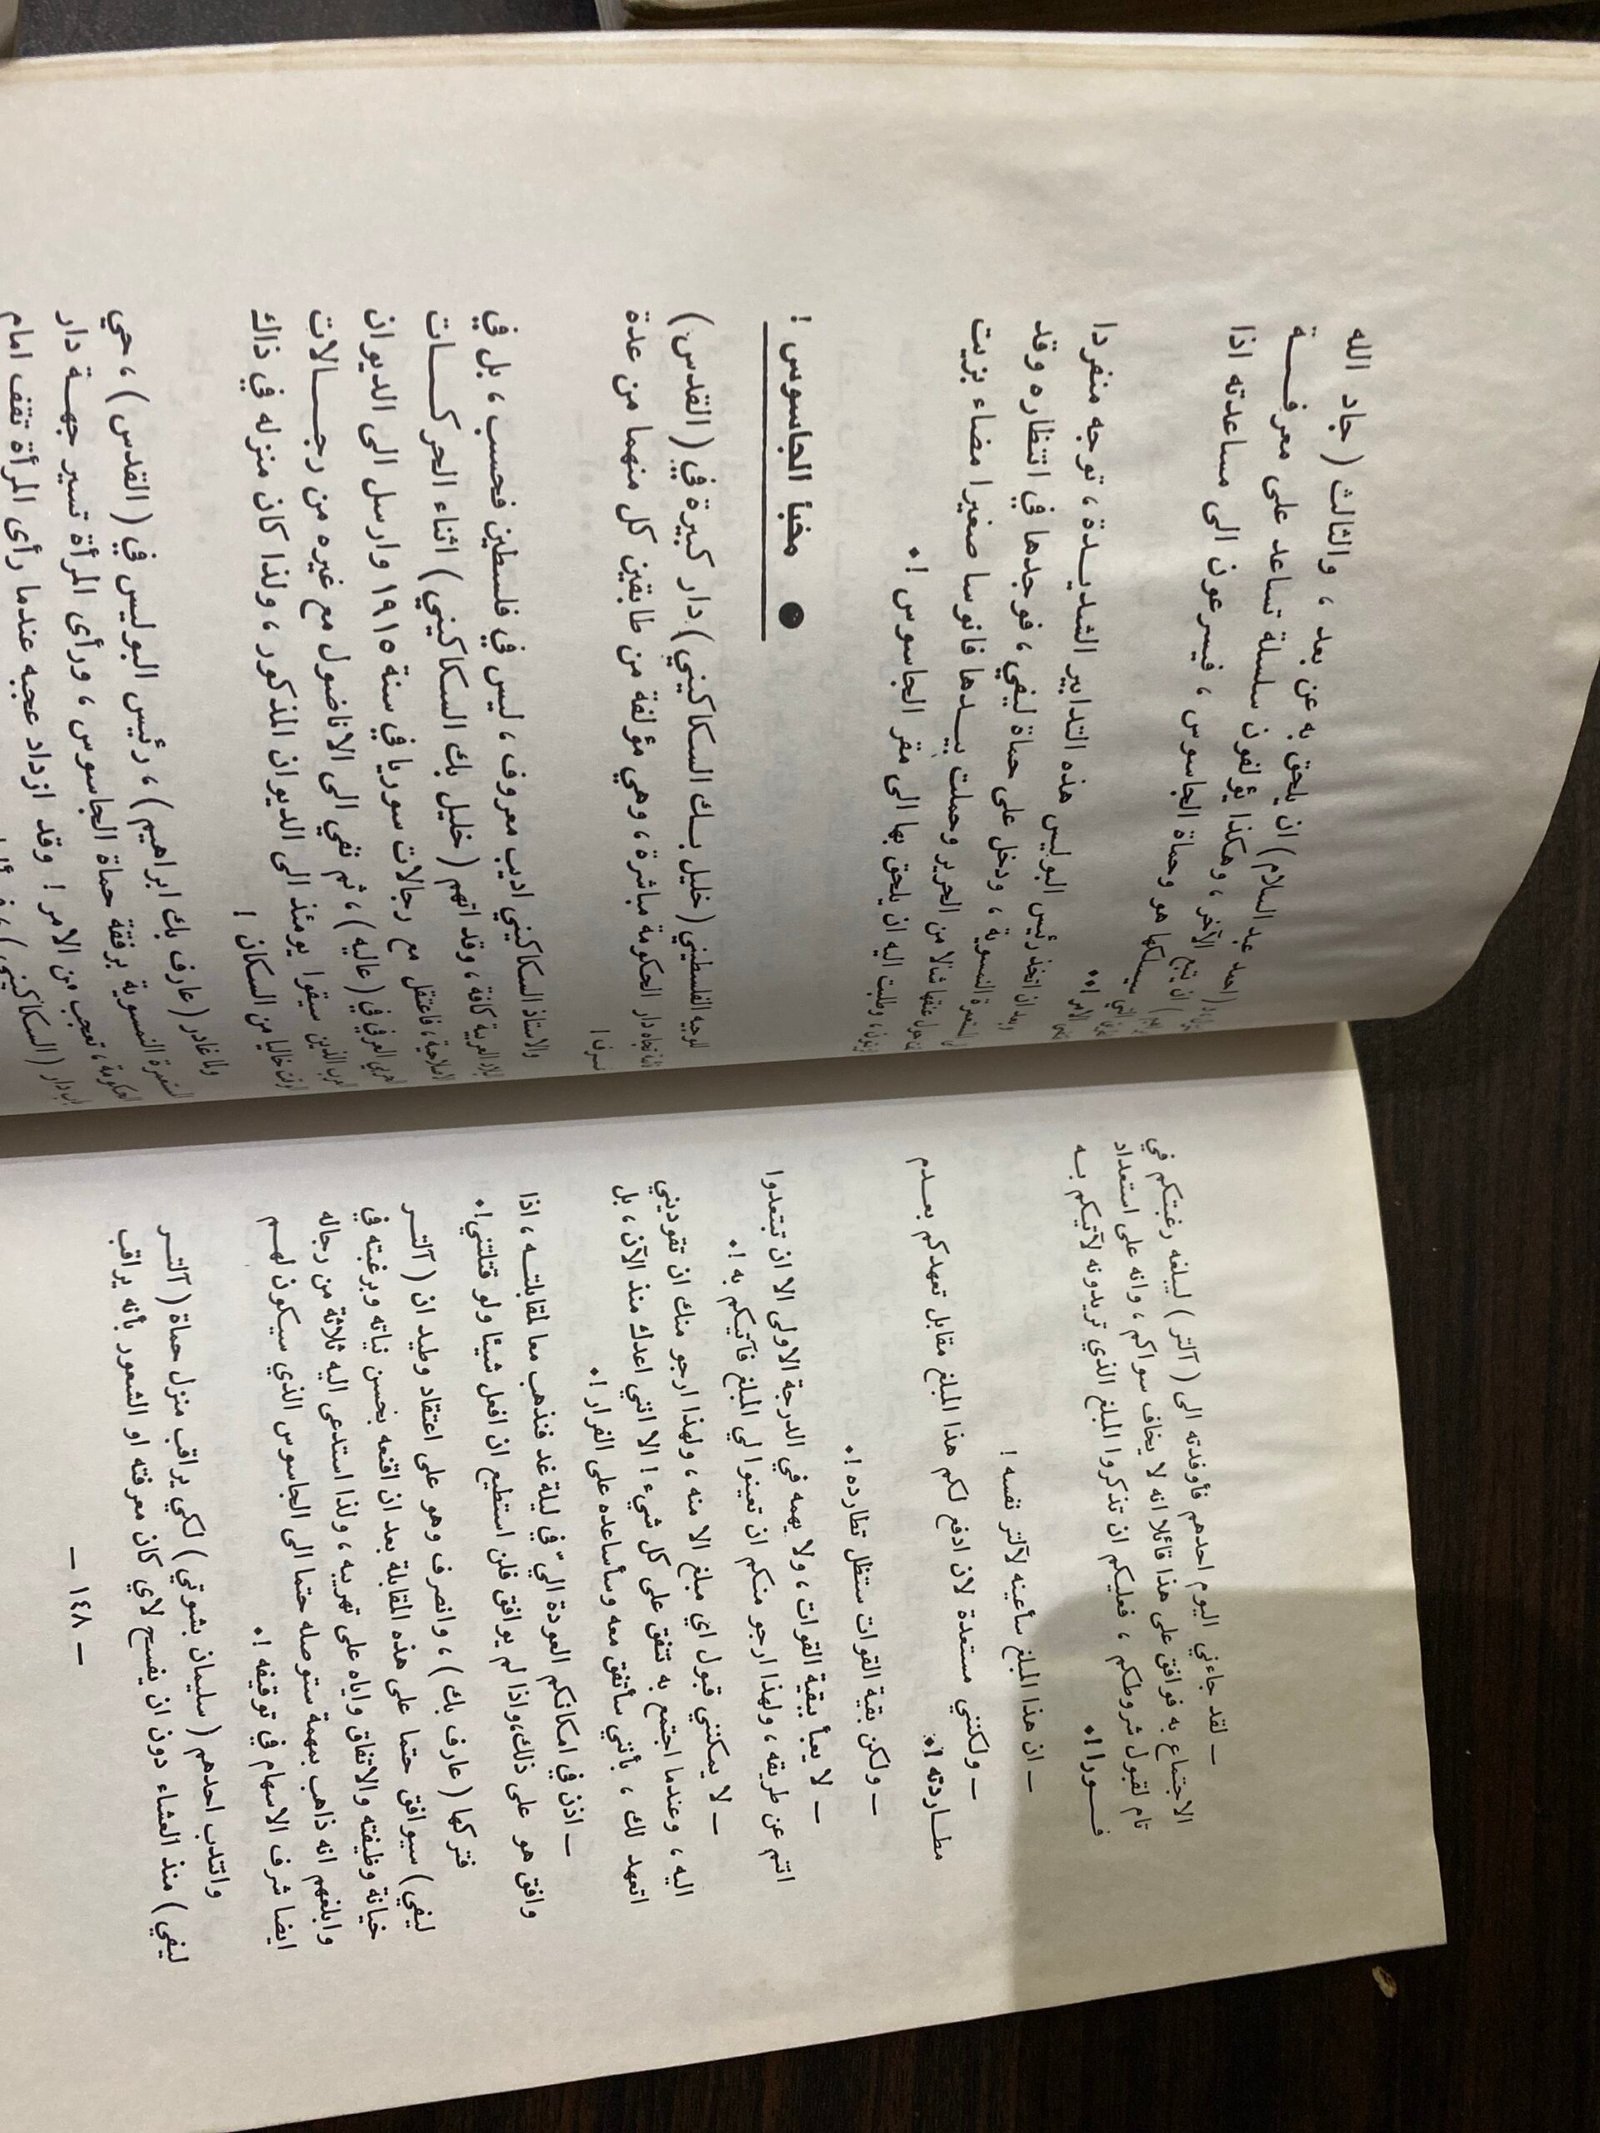 ـ لقد جاءني اليوم احدهم فأوفدته الى ( آلتر ) ليبلغه رغبتكم في
الاجتماع به فوافق على هذا قائلا انه لا يخاف سواكم ، وانه على استعداد
تام لقبول شروطكم ، فعليكم ان تذكروا المبلغ الذي تريدونه لآتيكم بــه
فــــورا !٠
ـ ان هذا المبلغ سأعينه لآلتر نفسه !
ـ ولكنني مستعدة لان ادفع لكم هذا المبلغ مقابل تعهدكم بعــدم
مطــاردته !٠
ـ ولكن بقية القوات ستظل تطارده !٠
ـ لا يعبأ ببقية القوات ، ولا يهمه في الدرجة الاولى الا ان تبتعدوا
انتم عن طريقه ، ولهذا ارجو منكم ان تعينوا لي المبلغ فآتيكم به !٠
ـ لا يمكنني قبول اي مبلغ الا منه ، ولهذا ارجو منك ان تقوديني
اليه ، وعندما اجتمع به نتفق على كل شيء ! الا انني اعدك منذ الآن ، بل
اتعهد لك ، بأنني سأتفق معه وسأساعده على الفرار !٠
ـ اذن في امكانكم العودة اليّ في ليلة غد فنذهب معا لمقابلتــه ، اذا
وافق هو على ذلك،واذا لم يوافق فلن استطيع ان افعل شيئا ولو قتلتني!٠
فتركها ( عارف بك ) ، وانصرف وهو على اعتقاد وطيد ان ( آلتــر
ليفي ) سيوافق حتما على هذه المقابلة بعد ان اقنعه بحسن نياته وبرغبته في
خيانة وظيفته والاتفاق واياه على تهريبه ، ولذا استدعى اليه ثلاثة من رجاله
وابلغهم انه ذاهب بمهمة ستوصله حتما الى الجاسوس الذي سيكون لهــم
ايضا شرف الاسهام في توقيفه !٠
وانتدب احدهم ( سليمان بشوتي ) لكي يراقب منزل حماة ( آلتــر
ليفي ) منذ العشاء دون ان يفسح لاي كان معرفته او الشعور بأنه يراقب
ـ ١٤٨ ـ
( جاد الله
، والثالث
( احمد عبد السلام ) ان يلحق به عن بعد
ان يتبع الآخر ، وهكذا يؤلفون سلسلة تساعد على معرفــــة
سيسلكها هو وحماة الجاسوس ، فيسرعون الى مساعدته اذا
الامر !٠
وبعد ان اتخذ رئيس البوليس هذه التدابير الشديــدة ، توجه منفردا
النمسوية ، ودخل على حماة ليفي ، فوجدها في انتظاره وقد
حول عنقها شالا من الحرير وحملت بيــدها فانوسا صغيرا مضاء بزيت
، وطلبت اليه ان يلحق بها الى مقر الجاسوس !٠
● مخبأ الجاسوس !
للوجيه الفلسطيني ( خليل بــك السكاكيني ) دار كبيرة في ( القدس )
تجاه دار الحكومة مباشرة ، وهي مؤلفة من طابقين كل منهما من عدة
غرف !
والاستاذ السكاكيني اديب معروف ، ليس في فلسطين فحسب ، بل في
البلاد العربية كافة ، وقد اتهم ( خليل بك السكاكيني ) اثناء الحركـــات
الاصلاحية ، فاعتقل مع رجالات سوريا في سنة ١٩١٥ وارسل الى الديوان
العرفي في ( عاليه ) ، ثم نفي الى الاناضول مع غيره من رجـــالات
العرب الذين سيقوا يومئذ الى الديوان المذكور ، ولذا كان منزله في ذاك
خاليا من السكان !
ولما غادر ( عارف بك ابراهيم ) ، رئيس البوليس في ( القدس ) ، حي
السفيرة النمسوية برفقة حماة الجاسوس ، ورأى المرأة تسير جهــة دار
الحكومة ، تعجب من الامر ! وقد ازداد عجبه عندما رأى المرأة تقف امام
باب دار ( السكاكيني ) ،